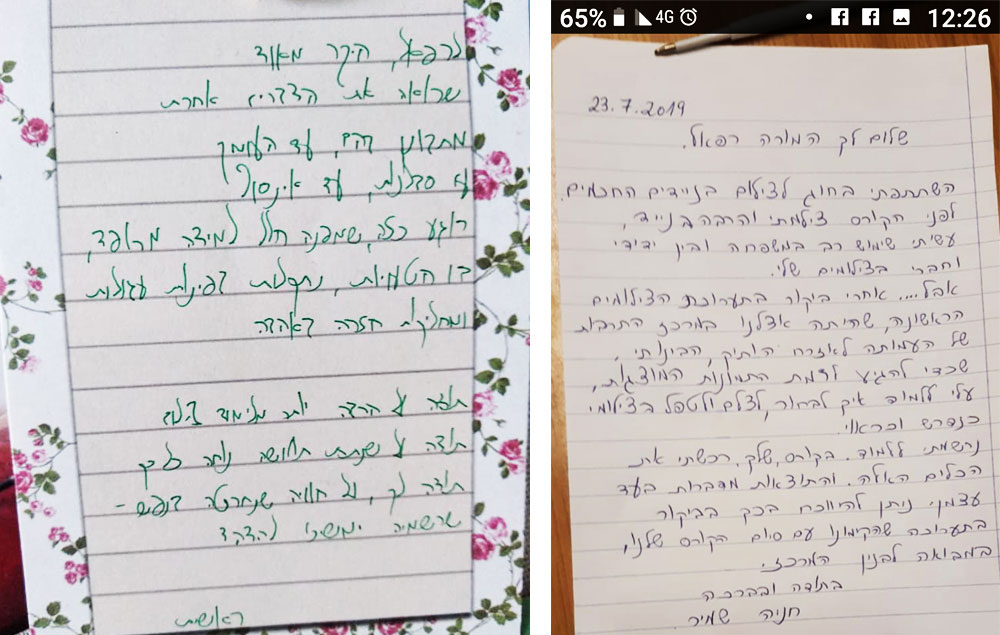 לרפאל, היקר מאוד
שרואה את הדברים אחרת
עד העומק
עד אינסוף
רגע כזה, שמפנה חלל למידה
בפינות עגולות
באהבה
תודה על הרבה יותר מלימוד צילום
תודה על
תודה לך, על חוויה שנחרטה בנפש -
65% 4G 12:26
23.7.2019
שלום לך המורה רפאל.
השתתפתי בחוג לצילום בניידים החכמים.
לפני הקורס צילמתי והרבה בנייד,
עשיתי שימוש רב במשפחה ובין ידידי
וחברי בצילומים שלי.
אבל.... אחרי ביקור בתערוכת הצילומים
הראשונה, שהיתה אצלנו במרכז התרבות
של העמותה לאזרח הותיק, הבינותי,
שכדי להגיע לרמת התמונות המוצגות,
עלי ללמוד איך לבחור, לצלם ולטפל בצילומי
כנדרש וכראוי.
נרשמתי ללמוד. בקורס, שלך, רכשתי את
הכלים האלה. והתוצאות מדברות בעד
עצמן. ניתן להיווכח בכך בביקור
בתערוכה שהקימונו עם סיום הקורס שלנו,
במבואה לבנין המרכז.
בתודה ובברכה
חניה שמיר